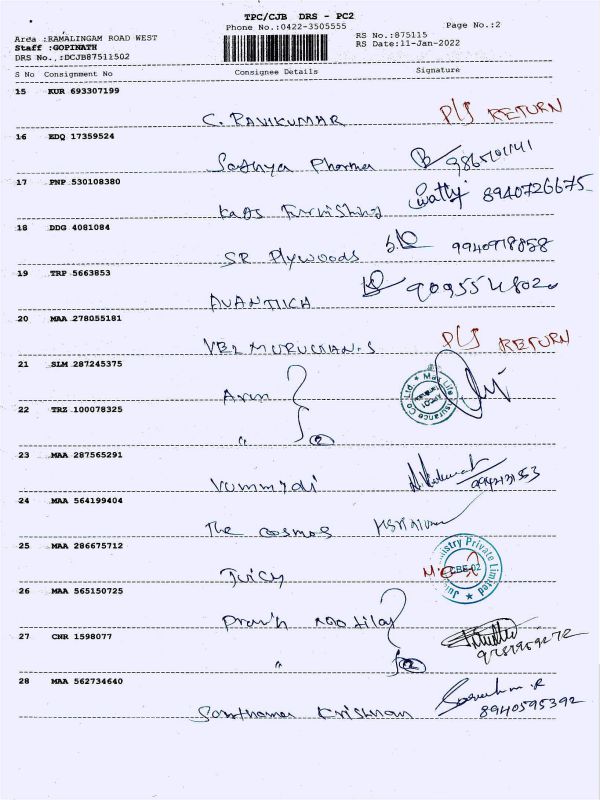 TPC/CJB DRS - PC2
Phone No.:0422-3505555
Page No.:2
Area :RAMALINGAM ROAD WEST
Staff :GOPINATH
DRS No.,:DCJB87511502
RS No.:875115
RS Date:11-Jan-2022
S No Consignment No Consignee Details Signature
15 KUR 693307199
C. RAVIKUMAR Pls RETURN
16 EDQ 17359524
Sathya Pharma
17 PNP 530108380
Kags Furnishing 8940726675
18 DDG 4081084
SR Plywoods 9940918858
19 TRP 5663853
AVANTIKA
20 MAA 278055181
VEL MURUGAN.S Pls RETURN
21 SLM 287245375
Arun
Max Life Insurance Co. Ltd.
22 TRZ 100078325
" 2
23 MAA 287565291
Vummidi
24 MAA 564199404
The cosmos
25 MAA 286675712
Juicy
Private Limited
CBE-02
26 MAA 565150725
27 CNR 1598077
" 2
28 MAA 562734640
Krishnan 8940595392